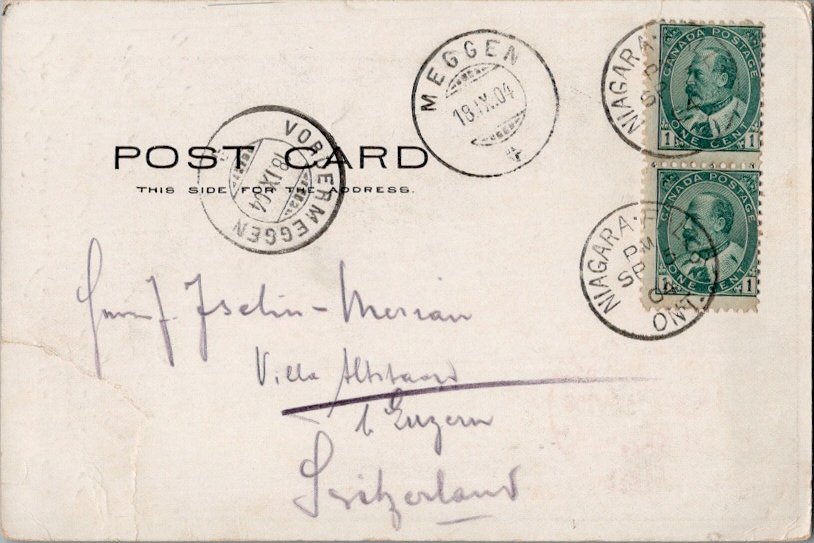 CANADA POSTAGE
1 ONE CENT 1
NIAGARA
PM
SP
MEGGEN
18.IX.04
POST CARD
THIS SIDE FOR THE ADDRESS.
VORDERMEGGEN
18.IX.04
CANADA POSTAGE
1 ONE CENT 1
NIAGARA-FALLS
PM
SP
ONT.
Herrn J. Iselin-Merian
Villa Altstaad
b/ Luzern
Switzerland